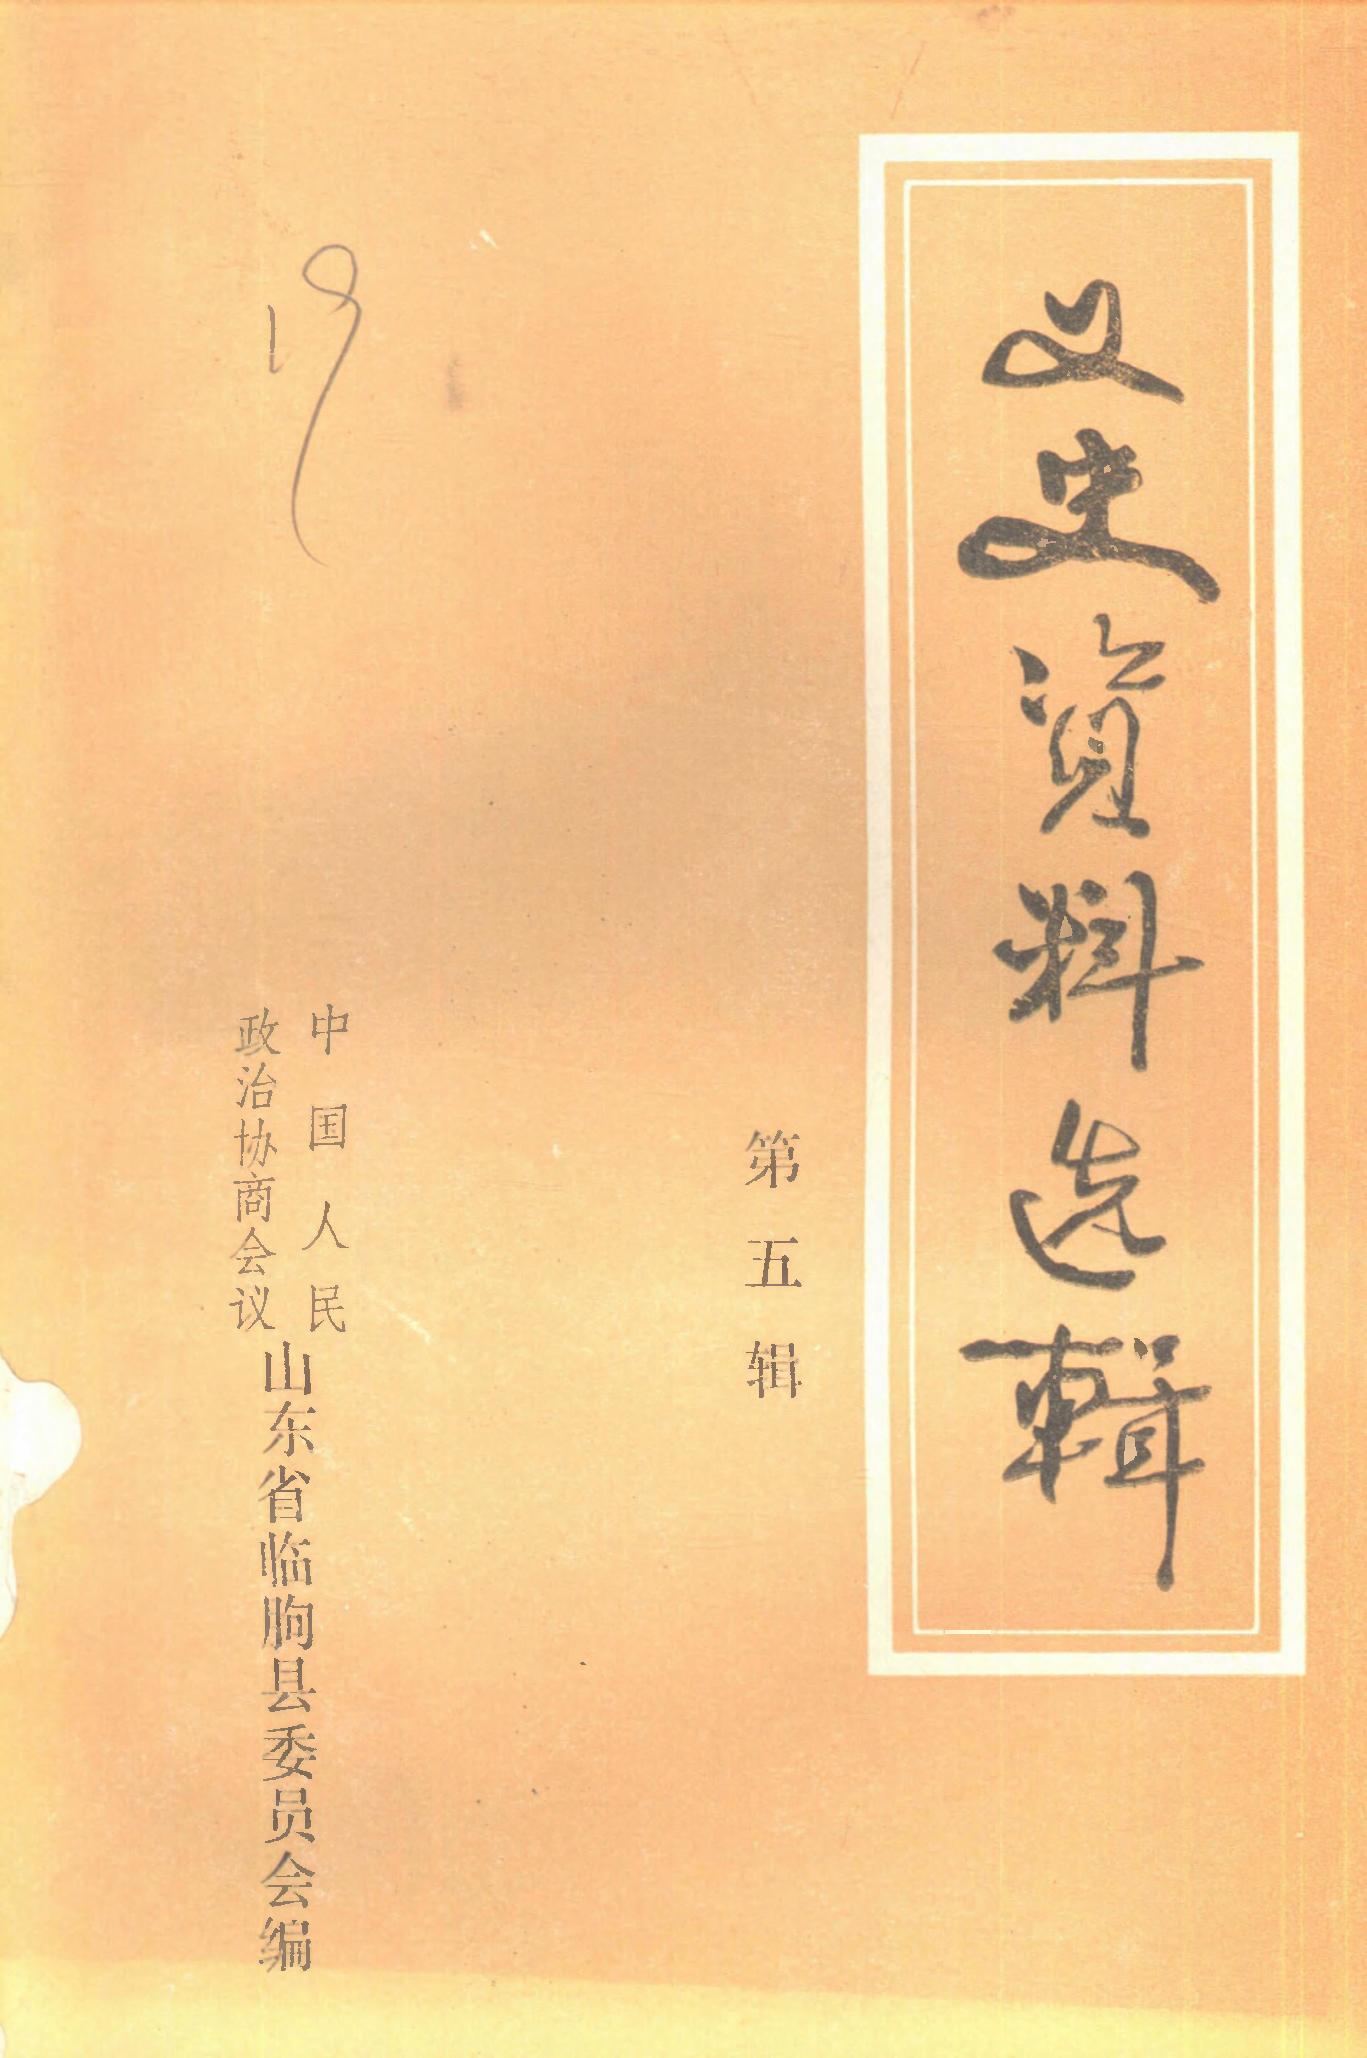 文史资料选辑
第五辑
中国人民
政治协商会议
山东省临朐县委员会编